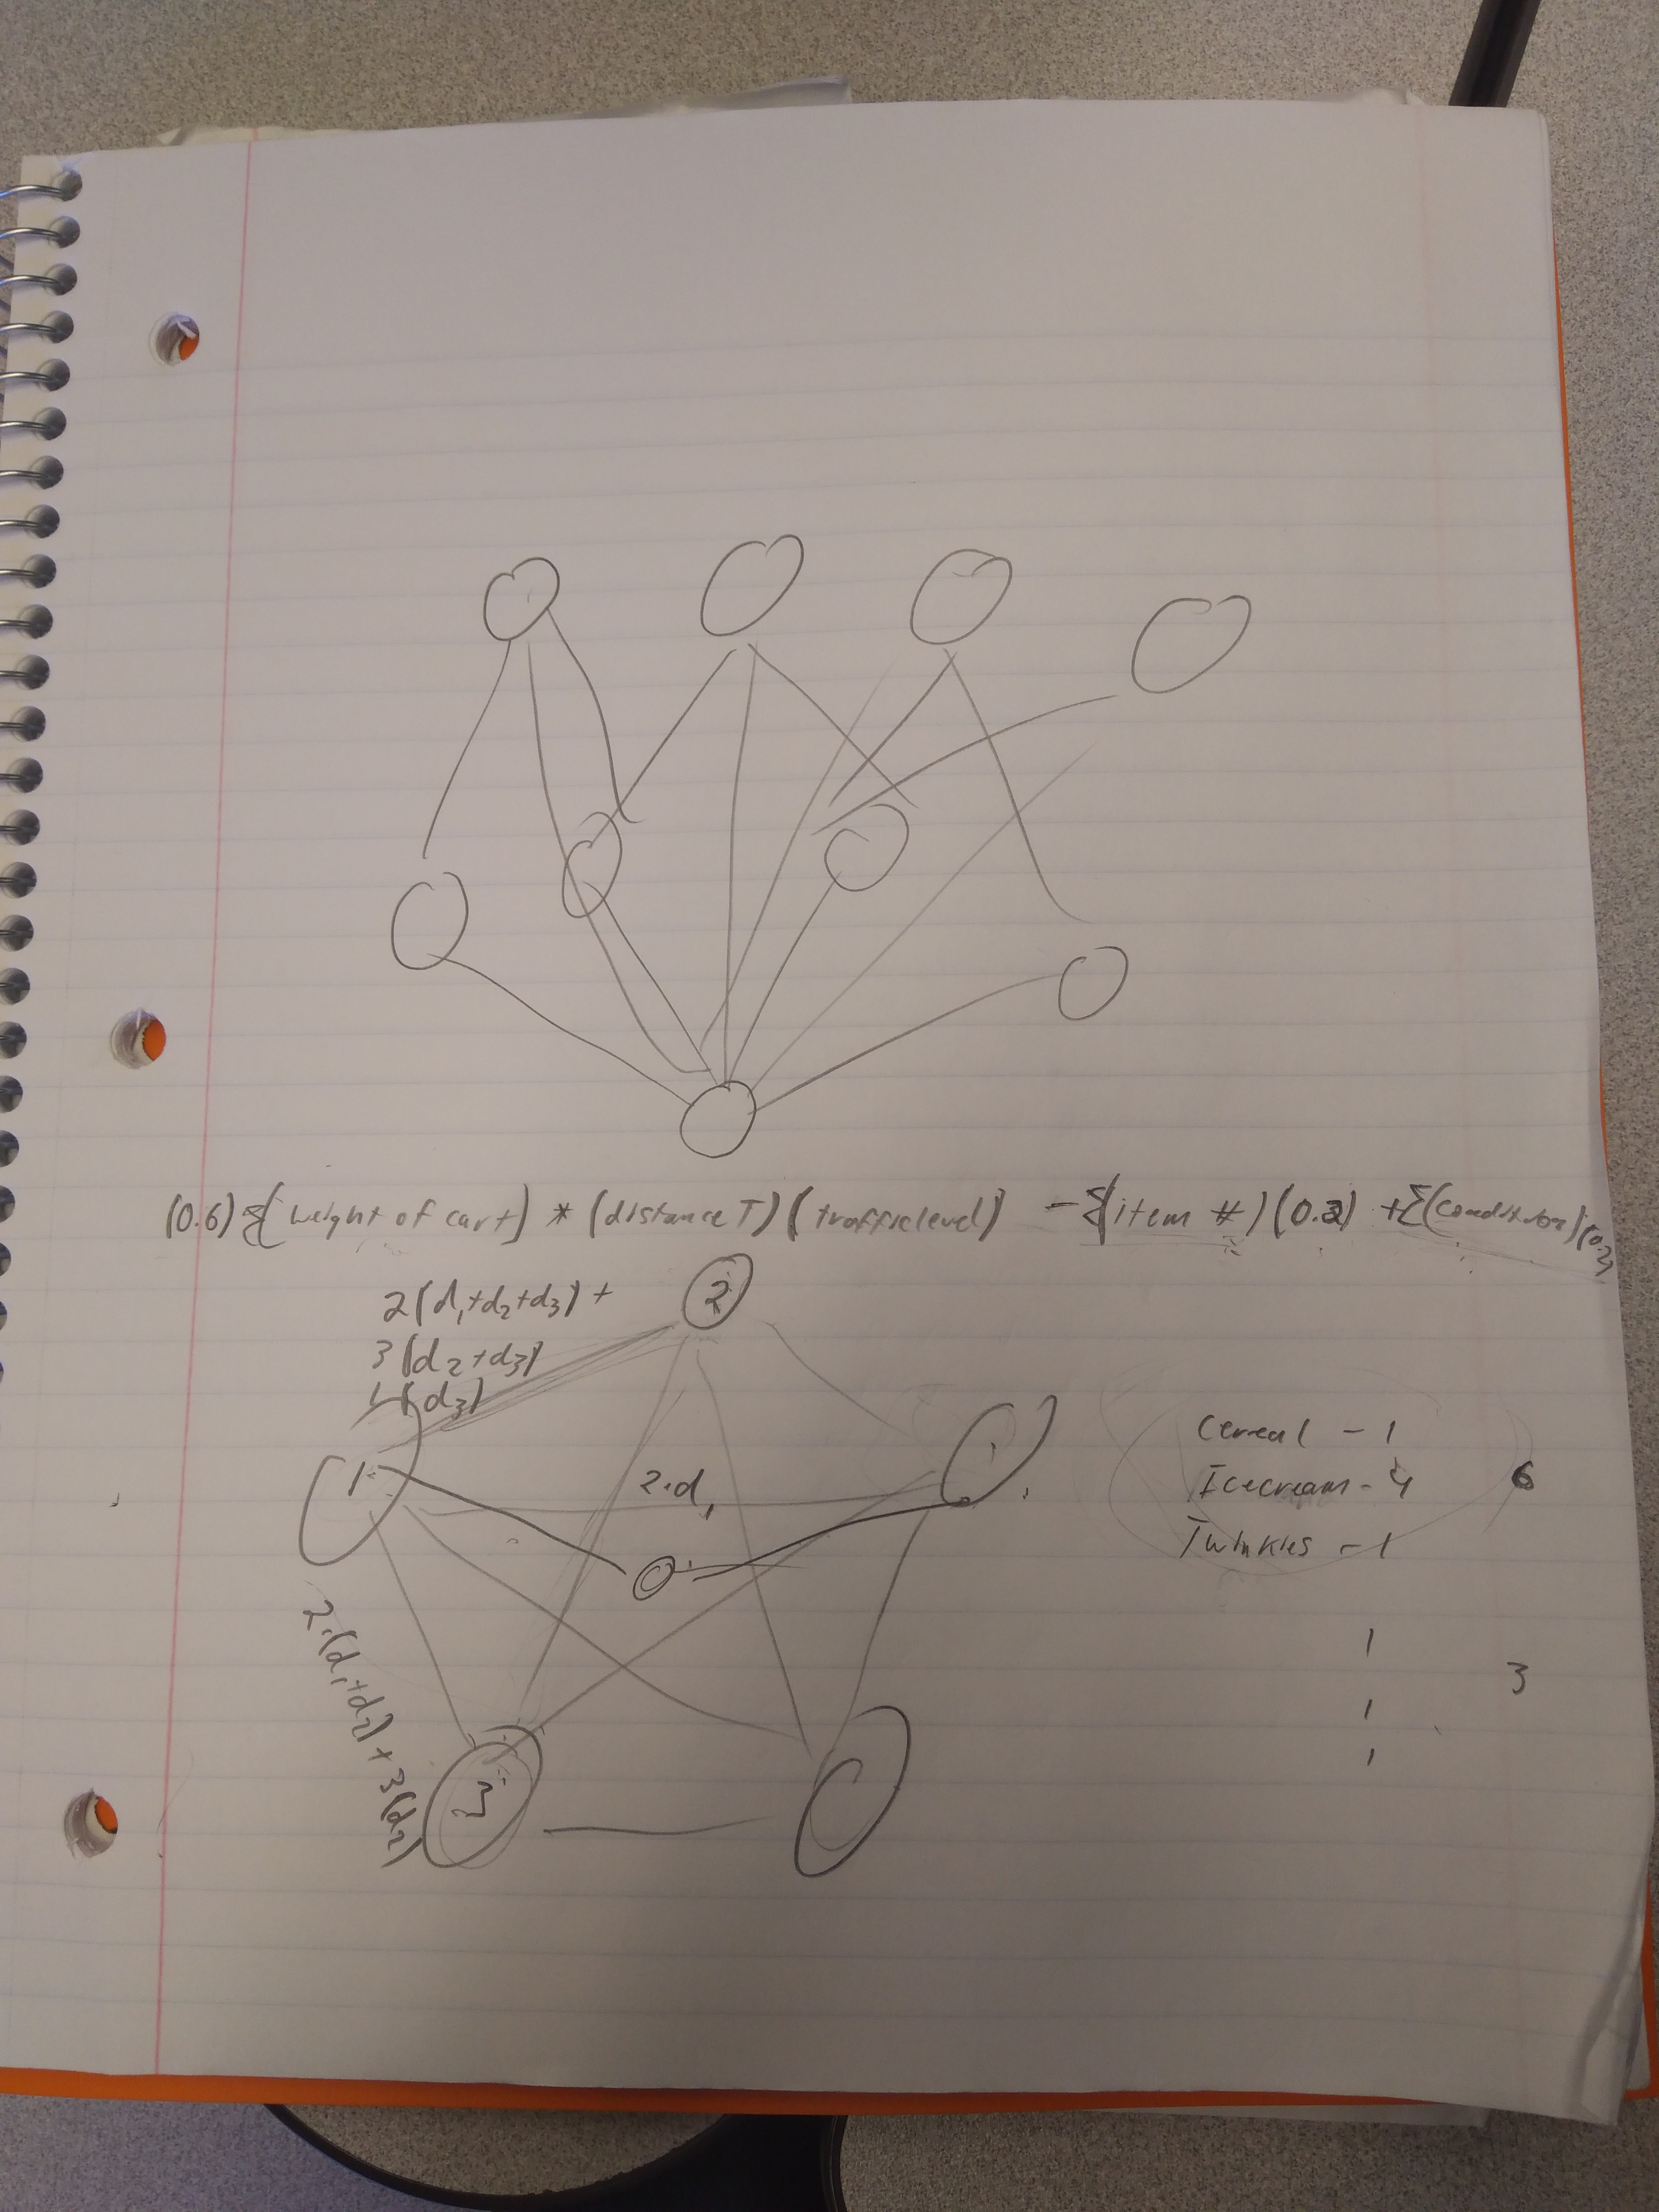 (0.6) Σ(weight of cart) * (distance T) (traffic level) - Σ(item #) (0.2) + Σ(condition)(0.2)
2(d₁+d₂+d₃) +
3(d₂+d₃)
4(d₃)
2
1
2·d₁
1
3
2·(d₁+d₂) + 3(d₂)
Cereal - 1
Icecream - 4
Twinkies - 1
6
1
1
1
3